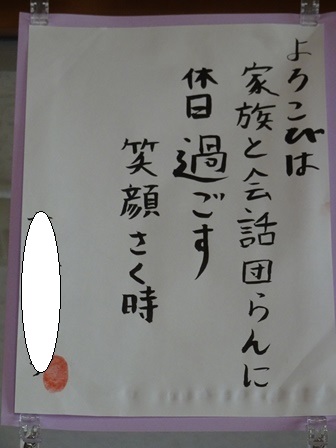 よろこびは
家族と会話団らんに
休日過ごす
笑顔さく時